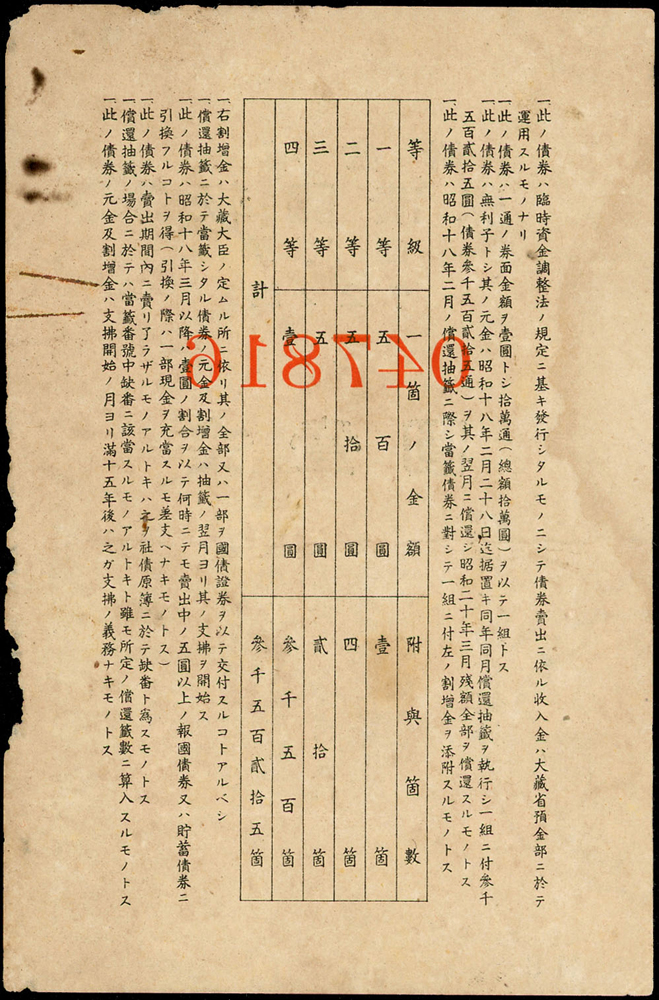 一、此ノ債券ハ臨時資金調整法ノ規定ニ基キ發行シタルモノニシテ債券賣出ニ依ル收入金ハ大藏省預金部ニ於テ
運用スルモノナリ
一、此ノ債券ハ一通ノ券面金額ヲ壹圓トシ拾萬通(總額拾萬圓)ヲ以テ一組トス
一、此ノ債券ハ無利子トシ其ノ元金ハ昭和十八年二月二十八日迄据置キ同年同月償還抽籤ヲ執行シ一組ニ付參千
五百貳拾五圓(債券參千五百貳拾五通)ヲ其ノ翌月ニ償還シ昭和二十年三月殘額全部ヲ償還スルモノトス
一、此ノ債券ハ昭和十八年二月ノ償還抽籤ニ際シ當籤債券ニ對シテ一組ニ付左ノ割增金ヲ添附スルモノトス
等級 一箇ノ金額 附與箇數
一等 五百圓 壹箇
二等 五拾圓 四箇
三等 五圓 貳拾箇
四等 壹圓 參千五百箇
計 參千五百貳拾五箇
047816
一、右割增金ハ大藏大臣ノ定ムル所ニ依リ其ノ全部又ハ一部ヲ國債證券ヲ以テ交付スルコトアルベシ
一、償還抽籤ニ於テ當籤シタル債券ノ元金及割增金ハ抽籤ノ翌月ヨリ其ノ支拂ヲ開始ス
一、此ノ債券ハ昭和十八年三月以降ハ壹圓ノ割合ヲ以テ何時ニテモ賣出中ノ五圓以上ノ報國債券又ハ貯蓄債券ニ
引換フルコトヲ得(引換ノ際ハ一部現金ヲ充當スルモ差支ヘナキモノトス)
一、此ノ債券ハ賣出期間內ニ賣リ了ラザルモノアルトキハ之ヲ社債原簿ニ於テ缺番ト爲スモノトス
一、償還抽籤ノ場合ニ於テハ當籤番號中缺番ニ該當スルモノアルトキト雖モ所定ノ償還籤數ニ算入スルモノトス
一、此ノ債券ノ元金及割增金ハ支拂開始ノ月ヨリ滿十五年後ハ之ガ支拂ノ義務ナキモノトス